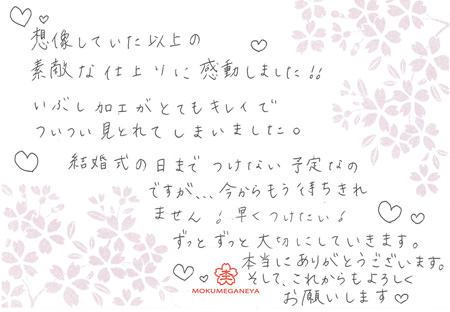 想像していた以上の
素敵な仕上りに感動しました!!
いぶし加工がとてもキレイで
ついつい見とれてしまいました。
結婚式の日までつけない予定なの
ですが、、、今からもう待ちきれ
ません! 早くつけたい!
ずっとずっと大切にしていきます。
本当にありがとうございます。
そして、これからもよろしく
お願いします♡
MOKUMEGANEYA